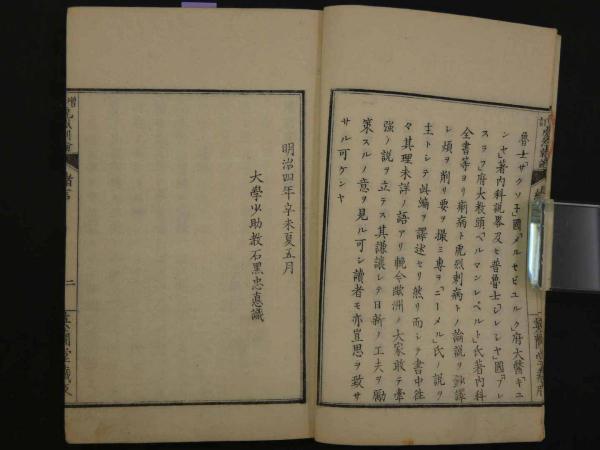 魯士「サクソン」國「メルセビュルク」府大醫「ギュ
ンセ」著內科說畧及ヒ普魯士「シレシヤ」國「ブレ
スラウ」府大敎頭「レベルト」氏著內科
全書等ヨリ痢病ト虎烈剌病トノ論說ヲ鈔譯
シ煩ヲ削リ要ヲ撮ミ專ラ「ニーメル」氏ノ說ヲ
主トシテ此編ヲ譯述セリ然リ而シテ書中往
々其理未詳ノ語アリ輓今歐洲ノ大家敢テ牽
強ノ說ヲ立テス其謙讓シテ日新ノ工夫ヲ勵
策スルノ意ヲ見ル可シ讀者モ亦豈思ヲ致サ
サル可ケンヤ
明治四年辛未夏五月
大學少助敎石黑忠悳識
二